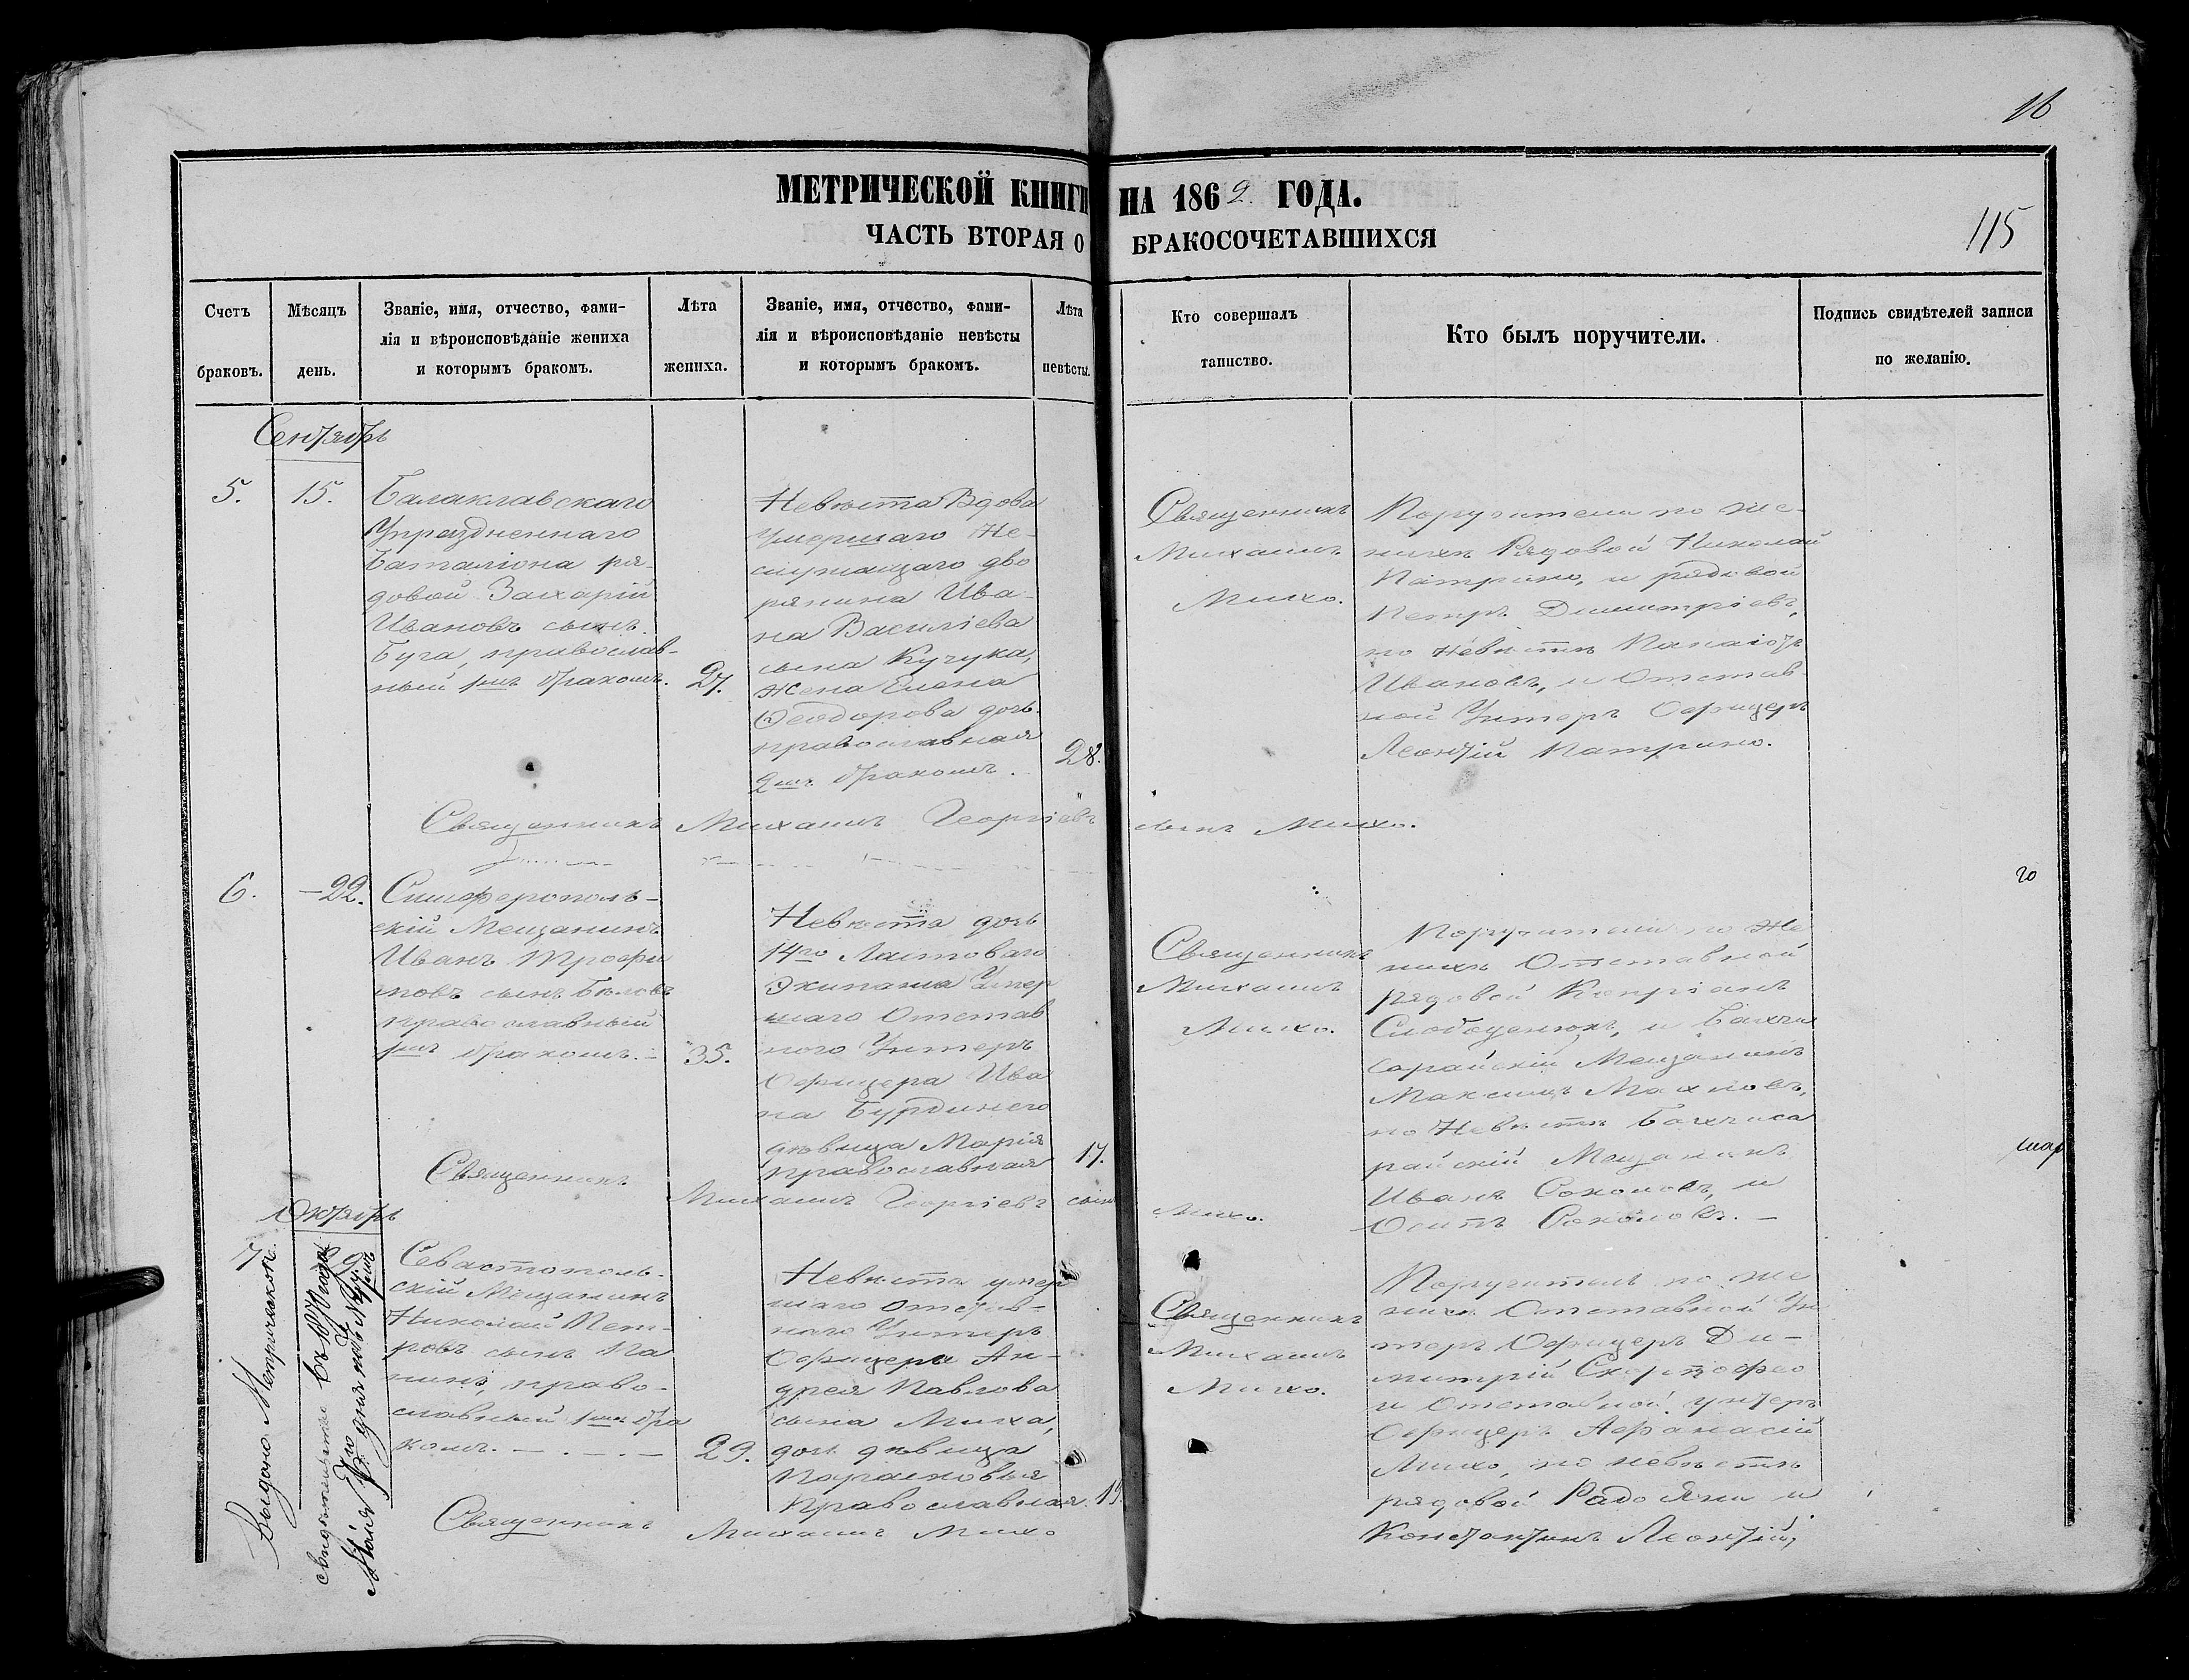 16
МЕТРИЧЕСКОЙ КНИГИ НА 1862 ГОДА.
115
ЧАСТЬ ВТОРАЯ О БРАКОСОЧЕТАВШИХСЯ
Счетъ браковъ.
Мѣсяцъ день.
Званіе, имя, отчество, фами-
лія и вѣроисповѣданіе жениха
и которымъ бракомъ.
Лѣта жениха.
Званіе, имя, отчество, фами-
лія и вѣроисповѣданіе невѣсты
и которымъ бракомъ.
Лѣта невѣсты.
Кто совершалъ
таинство.
Кто былъ поручители.
Подпись свидѣтелей записи
по желанію.
Сентябрь
5.
15.
Балаклавскаго
Упраздненнаго
Баталіона ря-
довой Захарій
Ивановъ сынъ
Буга, православ-
ный 1мъ бракомъ.
27.
Невѣста Вдова
Умершаго Не-
служащаго дво
рянина Ива-
на Василіева
сына Кучука,
жена Елена
Ѳеодорова дочь
православная
2мъ бракомъ.
28.
Священникъ
Михаилъ
Михо.
Поручители по же-
нихѣ Рядовой Николай
Патрино, и рядовой
Петръ Димитріевъ,
по невѣстѣ Панаіотъ
Ивановъ, и Отстав-
ной Унтеръ Офицеръ
Леонтій Патрино.
Священникъ Михаилъ Георгіевъ сынъ Михо.
6.
-22.
Симферополь-
скій Мещанинъ
Иванъ Трофи
мовъ сынъ Бѣловъ
православный
1мъ бракомъ.-
35.
Невѣста дочь
14го Ластоваго
Экипажа Умер
шаго Отстав
ного Унтеръ
Офицера Ива
на Бурдинего
дѣвица Марія
православная
17.
Священникъ
Михаилъ
Михо.
Поручители по Же
нихѣ Отставной
рядовой Кипріанъ
Слободенюкъ, и Бахчи
сарайскій Мещанинъ
Максимъ Махновъ,
по Невѣстѣ Бахчиса
райскій Мещанинъ
Иванъ Соколовъ, и
Осипъ Соколовъ.-
го
шар
Священникъ Михаилъ Георгіевъ сынъ Михо.
Октябрь
7
Выдано Метрическое
свидѣтельство
Севастополь-
скій Мещанинъ
Николай Пет-
ровъ сынъ Па
нинъ, право-
славный 1мъ бра
комъ.-.--
29.
Невѣста умер
шаго Отстав-
наго Унтеръ
Офицера Ан-
дрея Павлова
сына Миха,
дочь дѣвица
Парасковья
православная.
19.
Священникъ
Михаилъ
Михо.
Поручители по же
нихѣ Отставной Ун
теръ Офицеръ Ди-
митрій
и Отставной унтеръ
Офицеръ Афанасій
Михо, по невѣстѣ
рядовой и
Константинъ Леонтій,
Священникъ Михаилъ Михо